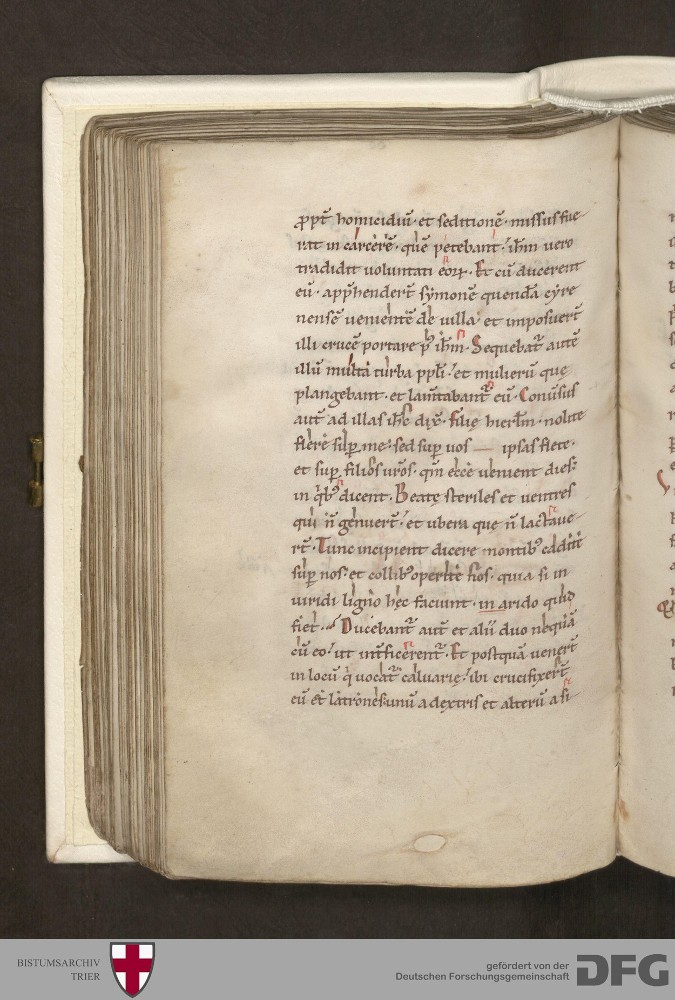 ꝓpt̄ homicidiū· et seditionē· missus fue-
rat in cárcerē· quē petebant· ihm̄ uero
tradidit uoluntati eoꝝ· Et cū ducerent
eū· app̄hendert̄ symonē quendā cyre
nensē uenientē de uilla· et imposuert̄
illi crucē portare p̄ ihm̄· Sequebat᷑ autē
illū multa turba ppl̄i· et mulierū que
plangebant· et lam̄tabant᷑ eū· Conūsus
aut̄ ad illas ihc̄ dix̄· Filię hierl̄m· nolite
flere sup̄ me· sed sup̄ uos — ipsas flete·
et sup̄ filios ur̄os· qm̄ ecce uenient dies·
in qⁱbꝰ dicent· Beatę steriles et uentres
qui n̄ genuert̄· et ubera que n̄ lactaue-
rt̄· Tunc incipient dicere montibꝰ cadite
sup̄ nos· et collibꝰ operite nos· quia si in
uiridi ligno hęc faciunt· in arido quid
fiet· Ducebant᷑ aut̄ et alii duo nequā
cū eo· ut int̄ficerent᷑· Et postquā uenert̄
in locū qⁱ uocat᷑ caluarię· ibi crucifixert̄
eū et latrones· unū a dextris et alterū a si-
BISTUMSARCHIV
TRIER
gefördert von der
Deutschen Forschungsgemeinschaft
DFG